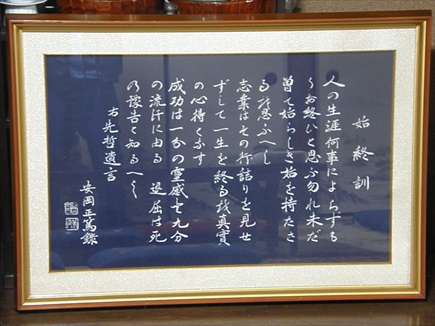 始終訓
人の生涯何事によらずも
うお終ひと思ふ勿れ未だ
曽て始らしき始を持たざ
るを思ふべし
志業はその行詰りを見せ
ずして一生を終るを真實
の心得となす
成功は一分の霊感と九分
の流汗に由る 退屈は死
の豫告と知るべし
右先哲遺言
安岡正篤録